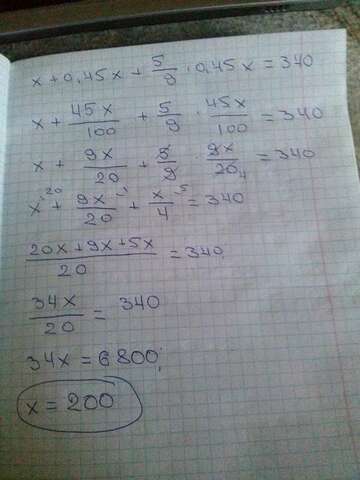 x + 0,45x + 5/9 · 0,45x = 340
x + 45x/100 + 5/9 · 45x/100 = 340
x + 9x/20 + 5/9 · 9x/20 4 = 340
x 20 + 9x/20 1 + x/4 5 = 340
20x + 9x + 5x/20 = 340
34x/20 = 340
34x = 6800;
x = 200